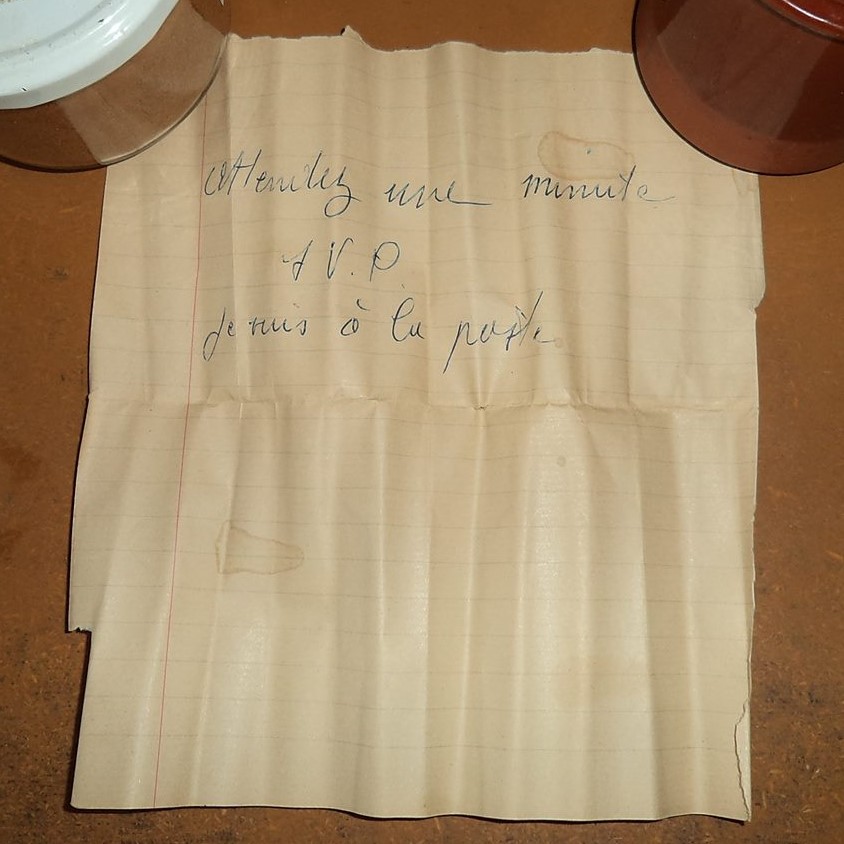 Attendez une minute
S V. P.
Je suis à la poste